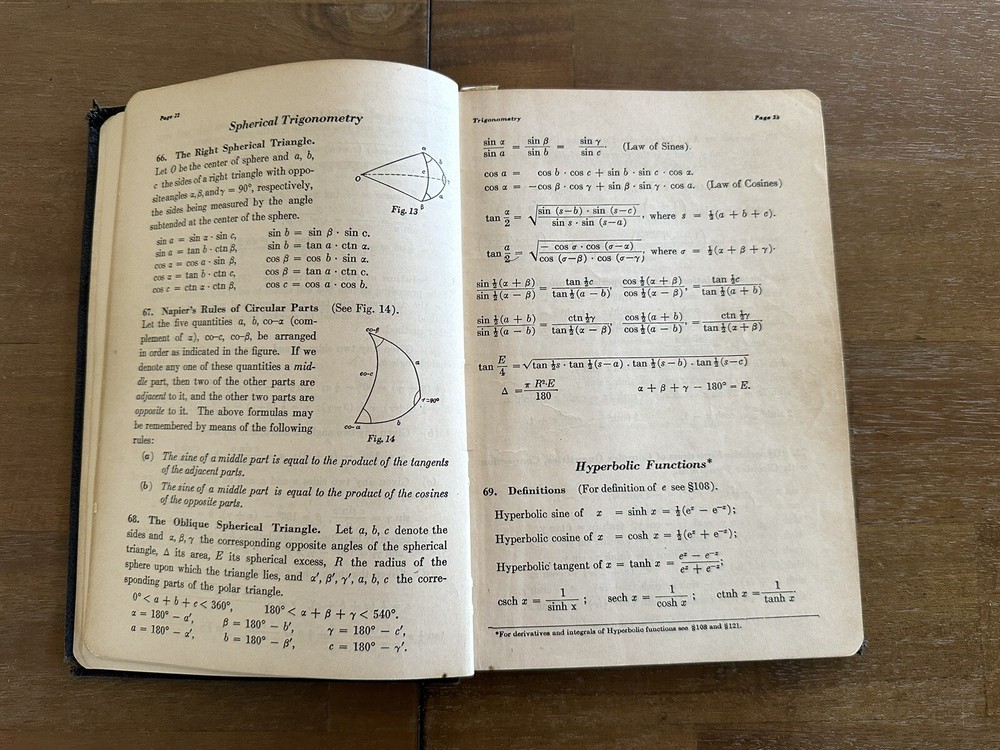 Page 22
Spherical Trigonometry
66. The Right Spherical Triangle.
Let O be the center of sphere and a, b,
c the sides of a right triangle with oppo-
site angles α, β, and γ = 90°, respectively,
the sides being measured by the angle
subtended at the center of the sphere.
O
α
b
c
a
β
Fig. 13
sin a = sin α · sin c, sin b = sin β · sin c.
sin a = tan b · ctn β, sin b = tan a · ctn α.
cos α = cos a · sin β, cos β = cos b · sin α.
cos α = tan b · ctn c, cos β = tan a · ctn c.
cos c = ctn α · ctn β, cos c = cos a · cos b.
67. Napier's Rules of Circular Parts (See Fig. 14).
Let the five quantities a, b, co-α (com-
plement of α), co-c, co-β, be arranged
in order as indicated in the figure. If we
denote any one of these quantities a mid-
dle part, then two of the other parts are
adjacent to it, and the other two parts are
opposite to it. The above formulas may
be remembered by means of the following
rules:
co-β
co-c
a
γ=90°
co-α
b
Fig. 14
(a) The sine of a middle part is equal to the product of the tangents
of the adjacent parts.
(b) The sine of a middle part is equal to the product of the cosines
of the opposite parts.
68. The Oblique Spherical Triangle. Let a, b, c denote the
sides and α, β, γ the corresponding opposite angles of the spherical
triangle, Δ its area, E its spherical excess, R the radius of the
sphere upon which the triangle lies, and α′, β′, γ′, a, b, c the corre-
sponding parts of the polar triangle.
0° < a + b + c < 360°, 180° < α + β + γ < 540°.
α = 180° − a′, β = 180° − b′, γ = 180° − c′,
a = 180° − α′, b = 180° − β′, c = 180° − γ′.
Trigonometry
Page 23
sin α / sin a = sin β / sin b = sin γ / sin c. (Law of Sines).
cos a = cos b · cos c + sin b · sin c · cos α.
cos α = −cos β · cos γ + sin β · sin γ · cos a. (Law of Cosines)
tan α/2 = √(sin (s−b) · sin (s−c) / sin s · sin (s−a)), where s = ½(a + b + c).
tan a/2 = √(− cos σ · cos (σ−α) / cos (σ−β) · cos (σ−γ)), where σ = ½(α + β + γ).
sin ½(α + β) / sin ½(α − β) = tan ½c / tan ½(a − b), cos ½(α + β) / cos ½(α − β), = tan ½c / tan ½(a + b)
sin ½(a + b) / sin ½(a − b) = ctn ½γ / tan ½(α − β), cos ½(a + b) / cos ½(a − b), = ctn ½γ / tan ½(α + β)
tan E/4 = √tan ½s · tan ½(s−a) · tan ½(s−b) · tan ½(s−c)
Δ = π R²·E / 180 α + β + γ − 180° = E.
Hyperbolic Functions*
69. Definitions (For definition of e see §108).
Hyperbolic sine of x = sinh x = ½(eˣ − e⁻ˣ);
Hyperbolic cosine of x = cosh x = ½(eˣ + e⁻ˣ);
Hyperbolic tangent of x = tanh x = eˣ − e⁻ˣ / eˣ + e⁻ˣ;
csch x = 1 / sinh x ; sech x = 1 / cosh x ; ctnh x = 1 / tanh x
*For derivatives and integrals of Hyperbolic functions see §108 and §121.